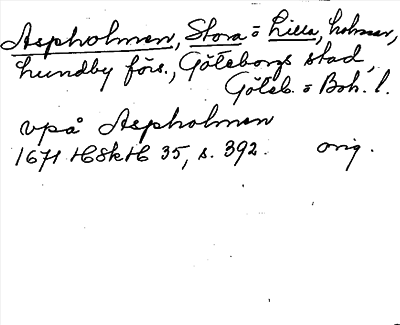 Aspholmen, Stora o Lilla, holmar,
Lundby förs., Göteborgs stad,
Göteb. o Boh. l.
vpå Aspholmen
1671 HSkH 35, s. 392. orig.